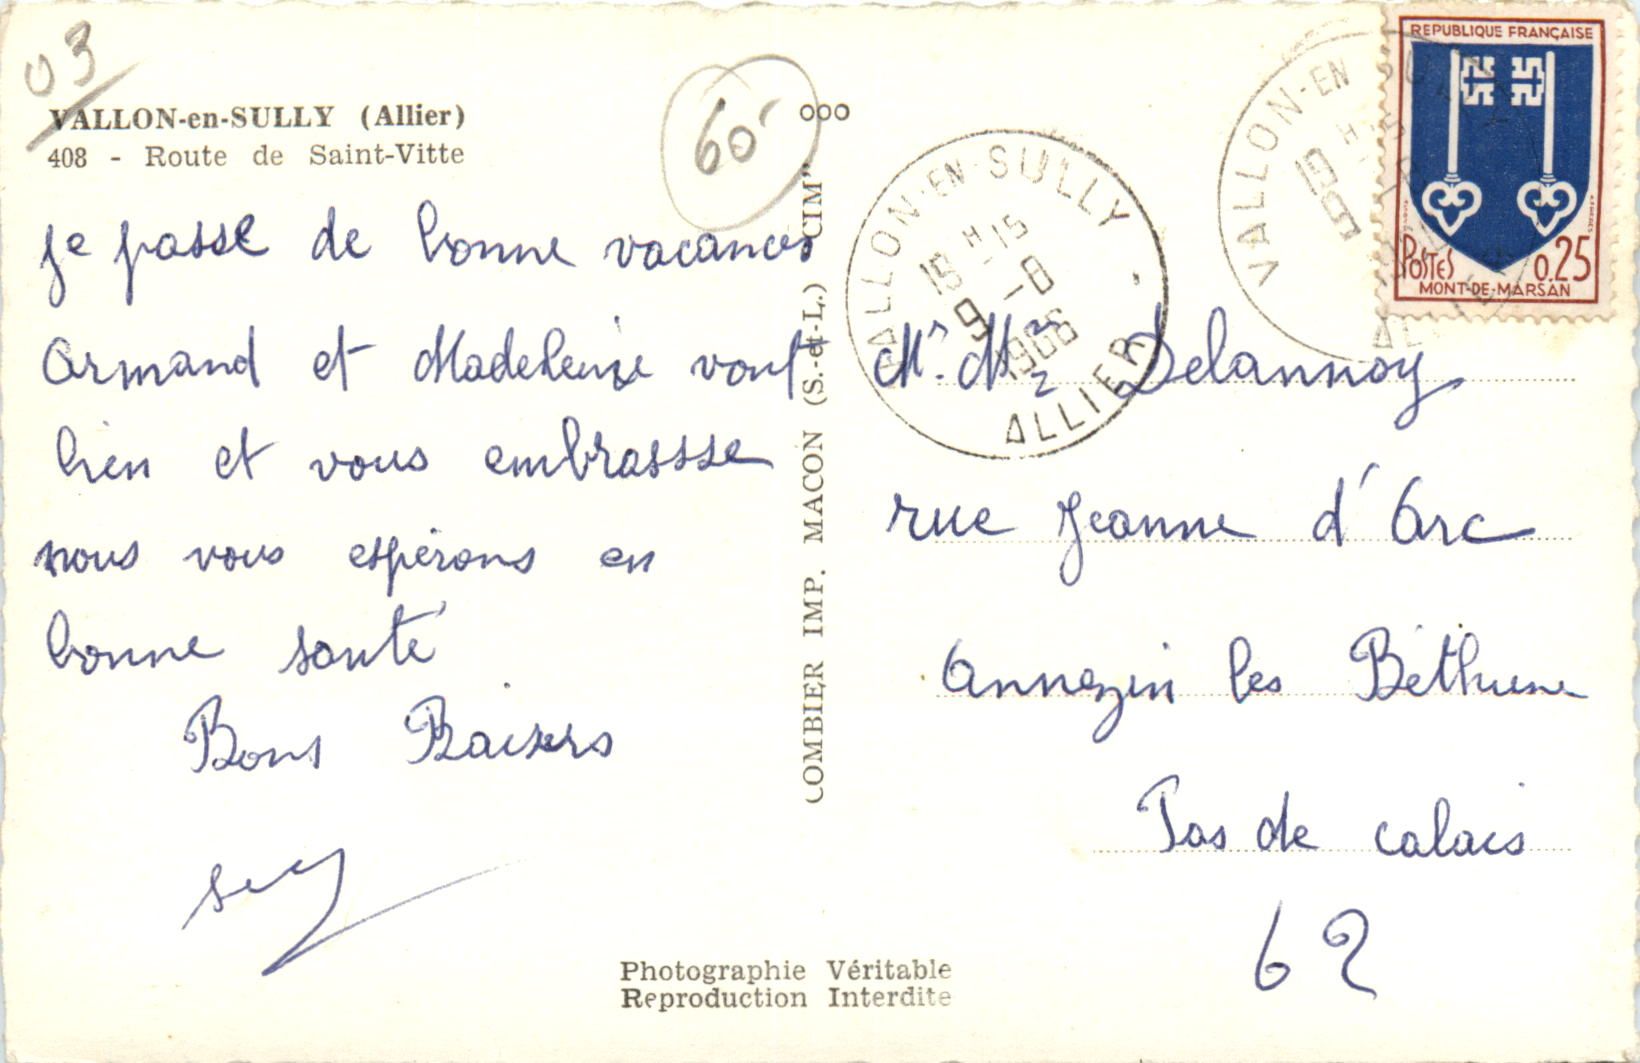 03
VALLON-en-SULLY (Allier)
408 - Route de Saint-Vitte
60-
je passe de bonne vacances
Armand et Madeleine vont
bien et vous embrassse
nous vous espérons en
bonne santé
Bons Baisers
COMBIER IMP. MACON (S.-et-L.) "CIM"
ooo
VALLON-EN-SULLY
15 H 15
9 -8
1966
ALLIER
VALLON-EN-SULLY
15 H 15
9 -8
ALLIER
REPUBLIQUE FRANÇAISE
POSTES 0.25
MONT-DE-MARSAN
Mr. Mme Delannoy
rue Jeanne d'Arc
Annezin les Béthune
Pas de calais
62
Photographie Véritable
Reproduction Interdite